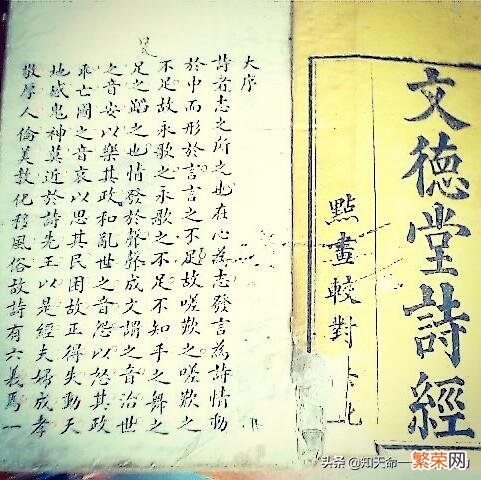 文德堂詩經
點畫較對
大序
詩者志之所之也在心為志發言為詩情動
於中而形於言言之不足故嗟歎之嗟歎之
不足故永歌之永歌之不足不知手之舞之
足之蹈之也情發於聲聲成文謂之音治世
之音安以樂其政和亂世之音怨以怒其政
乖亡國之音哀以思其民困故正得失動天
地感鬼神莫近於詩先王以是經夫婦成孝
敬厚人倫美教化移風俗故詩有六義焉一
头条 @知天命一
繁荣网